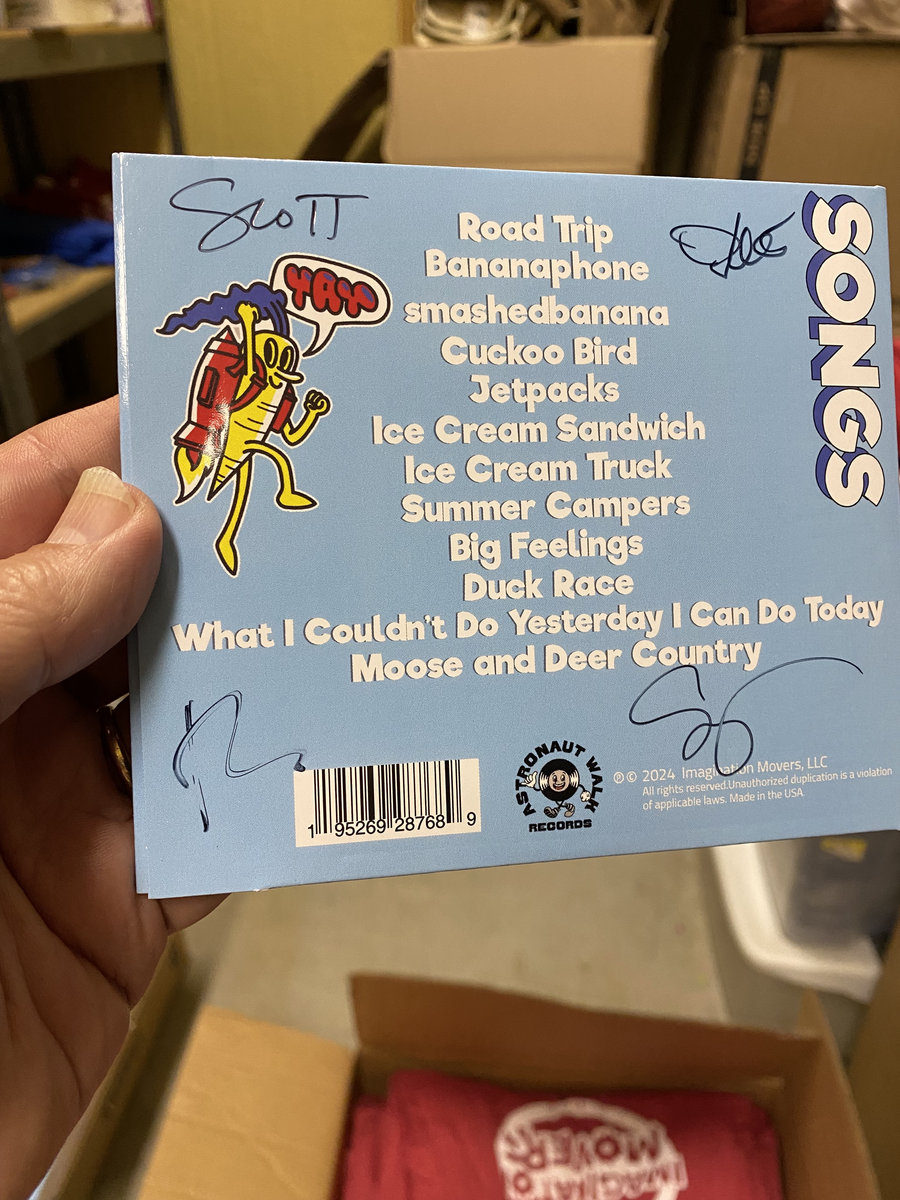 SCOTT
YAY
SONGS
Road Trip
Bananaphone
smashedbanana
Cuckoo Bird
Jetpacks
Ice Cream Sandwich
Ice Cream Truck
Summer Campers
Big Feelings
Duck Race
What I Couldn't Do Yesterday I Can Do Today
Moose and Deer Country
1 95269 28768 9
ASTRONAUT WALK
RECORDS
℗ © 2024 Imagination Movers, LLC
All rights reserved.Unauthorized duplication is a violation
of applicable laws. Made in the USA
IMAGINATIO
MOVERS